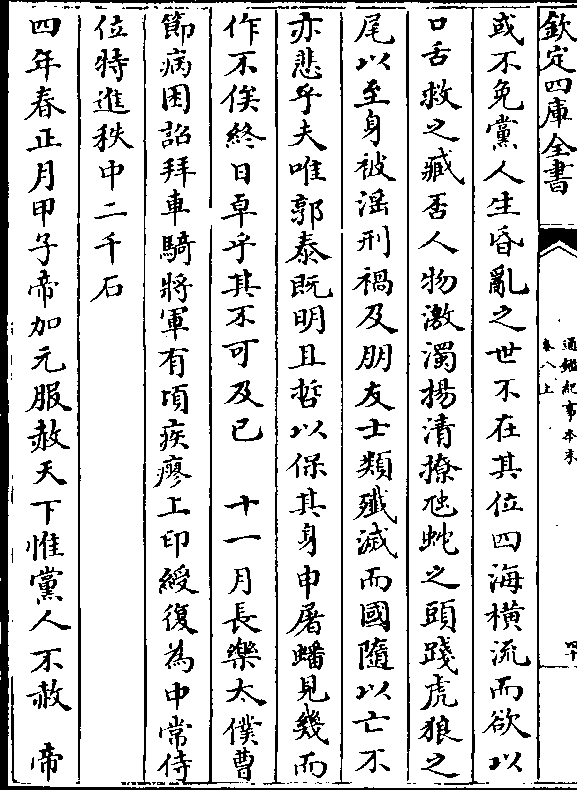 欽定四庫全書
通鑑紀事本末
卷八上
四十
或不免黨人生昏亂之世不在其位四海橫流而欲以
口舌救之臧否人物激濁揚清撩虺蛇之頭踐虎狼之
尾以至身被淫刑禍及朋友士類殲滅而國隨以亡不
亦悲乎夫唯郭泰既明且哲以保其身申屠蟠見幾而
作不俟終日卓乎其不可及已　十一月長樂太僕曹
節病困詔拜車騎將軍有頃疾瘳上印綬復為中常侍
位特進秩中二千石
四年春正月甲子帝加元服赦天下惟黨人不赦　帝